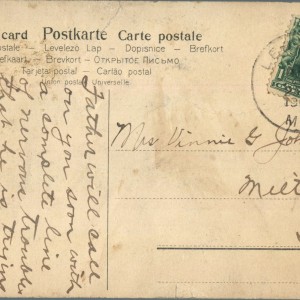 card Postkarte Carte postale
Postkarte — Levelező Lap — Dopisnice — Brefkort
Brefkaart — Brevkort — ОТКРЫТОЕ ПИСЬМО
Tarjeta postal — Cartão postal
Union postale Universelle
Father will call
on you soon with
a complete line
of nervous troubles
that he is trying
Mrs Vinnie G Jo
M
1